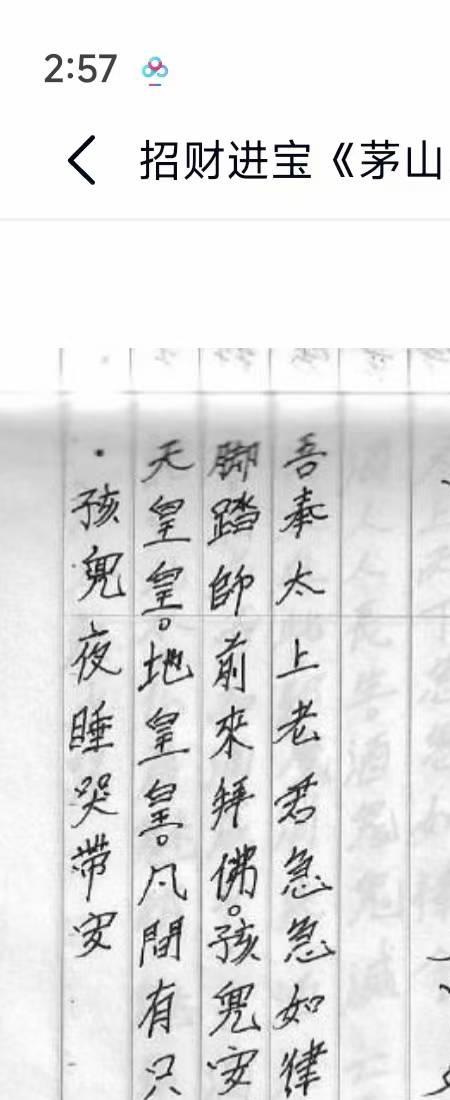 2:57
招财进宝《茅山
·孩兒夜睡哭帶安
天皇皇。地皇皇。凡間有只
脚踏師前來拜佛。孩兒安
吾奉太上老君急急如律